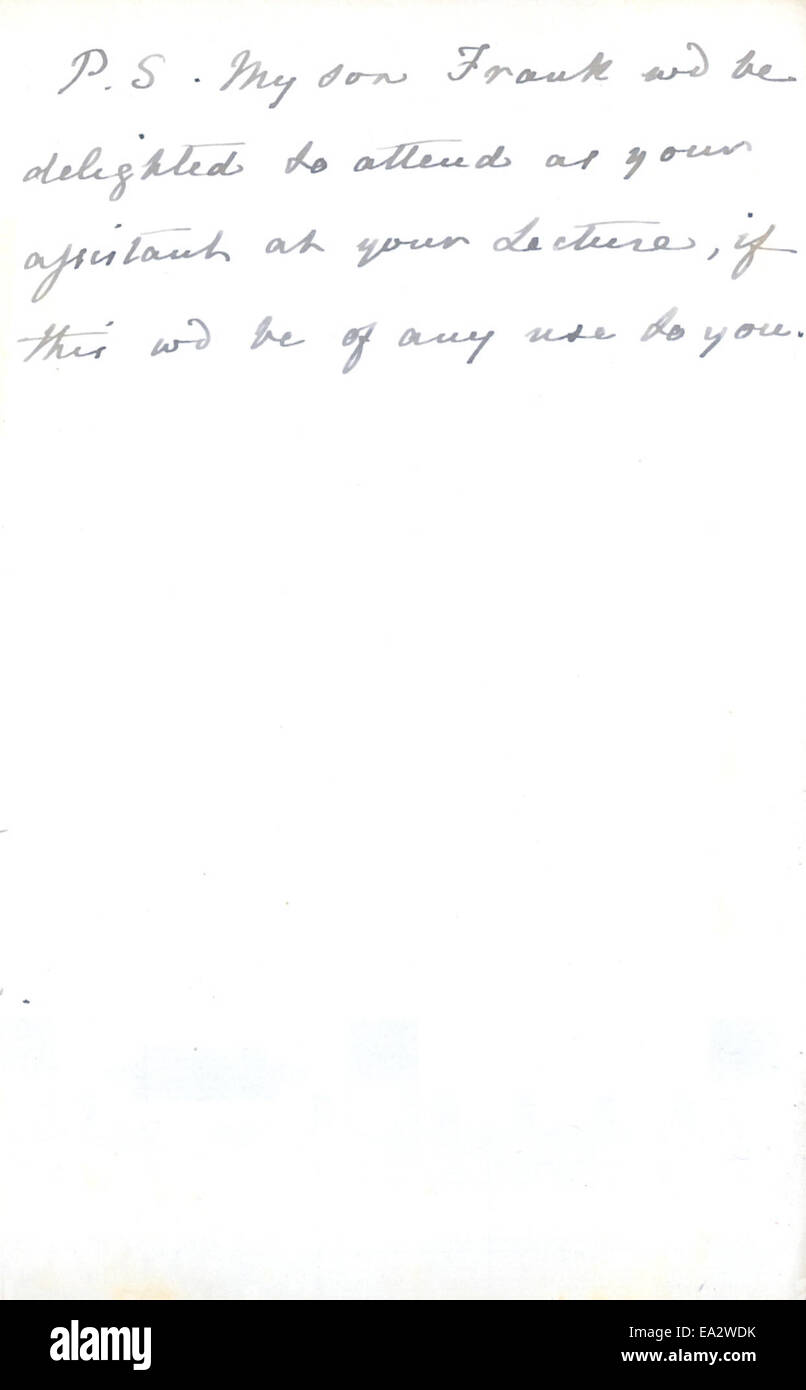 P.S. My son Frank wd be
delighted to attend as your
assistant at your Lecture, if
this wd be of any use to you.
alamy
Image ID: EA2WDK
www.alamy.com